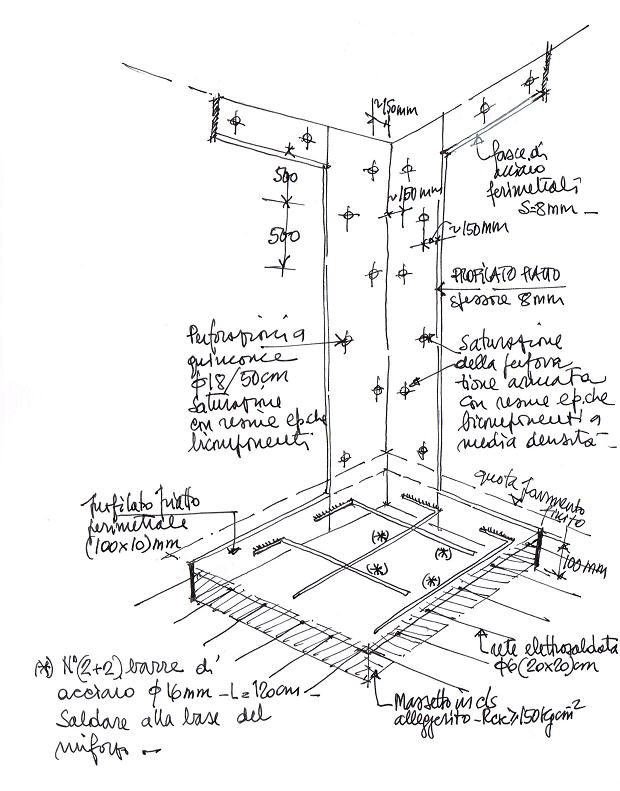 ~150mm
fasce di
acciaio
perimetrali
S=8mm
500
~150mm
500
~150mm
PROFILATO PIATTO
spessore 8mm
Perforazioni a
quinconce
φ18/50cm
saturazione
con resine ep.che
bicomponenti
saturazione
della perfora
zione armata
con resine ep.che
bicomponenti a
media densità
quota pavimento
finito
profilato piatto
perimetrale
(100x10)mm
(*)
(*)
(*)
(*)
100mm
rete elettrosaldata
φ6(20x20)cm
(*) N°(2+2) barre di
acciaio φ16mm - L=120cm -
saldare alla base del
rinforzo
Massetto in cls
alleggerito - Rck≥150kg/cm²